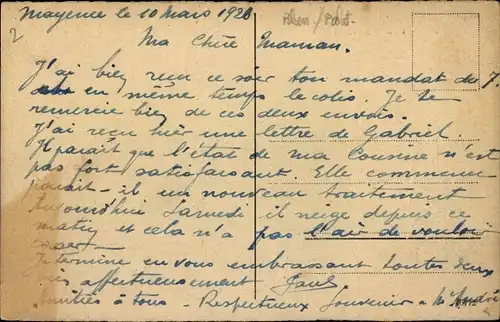 Mayence le 10 Mars 1923
2
Rhen / Post-
Ma Chère Maman.
J'ai bien reçu ce soir ton mandat du 7.
en même temps le colis. Je te
remercie bien de ces deux envois.
J'ai reçu hier une lettre de Gabriel.
Il paraît que l'état de ma Cousine n'est
pas fort satisfaisant. Elle commence
paraît-il un nouveau traitement
Aujourd'hui Samedi il neige depuis ce
matin et cela n'a pas l'air de vouloir
cesser.
Je termine en vous embrassant toutes deux
très affectueusement Paul
Amitiés à tous - Respectueux Souvenir à Mr André